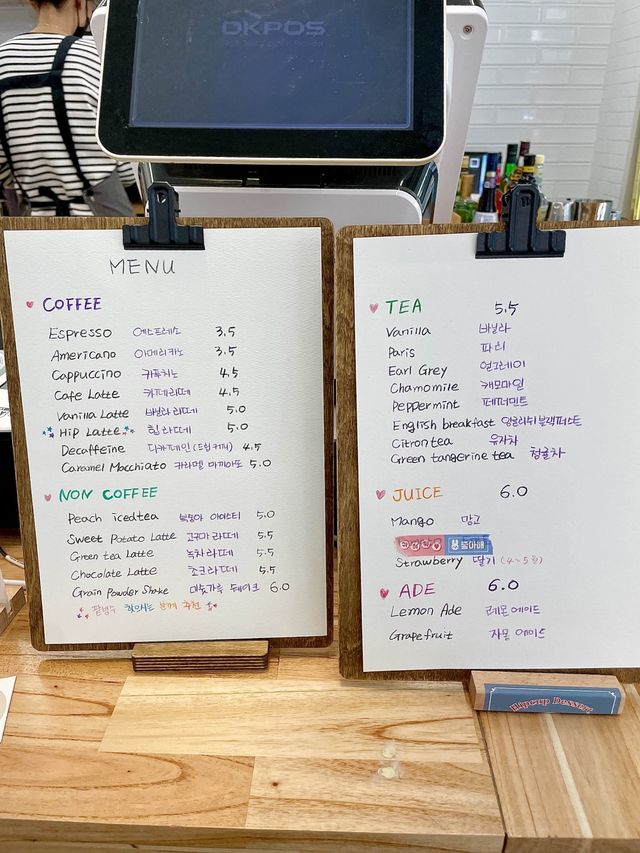 OKPOS
MENU
COFFEE
Espresso 에스프레소 3.5
Americano 아메리카노 3.5
Cappuccino 카푸치노 4.5
Cafe Latte 카페라떼 4.5
Vanilla Latte 바닐라 라떼 5.0
Hip Latte 힙 라떼 5.0
Decaffeine 디카페인 (드립커피) 4.5
Caramel Macchiato 카라멜 마끼아또 5.0
NON COFFEE
Peach icedtea 복숭아 아이스티 5.0
Sweet Potato Latte 고구마 라떼 5.5
Green tea Latte 녹차 라떼 5.5
Chocolate Latte 초코 라떼 5.5
Grain Powder Shake 미숫가루 쉐이크 6.0
팥빙수 찾으시는 분께 추천
TEA 5.5
Vanilla 바닐라
Paris 파리
Earl Grey 얼그레이
Chamomile 캐모마일
Peppermint 페퍼민트
English breakfast 잉글리쉬 블랙퍼스트
Citron tea 유자차
Green tangerine tea 청귤차
JUICE 6.0
Mango 망고
좋아해
Strawberry 딸기 (4~5월)
ADE 6.0
Lemon Ade 레몬 에이드
Grapefruit 자몽 에이드
Hipcup Dessert